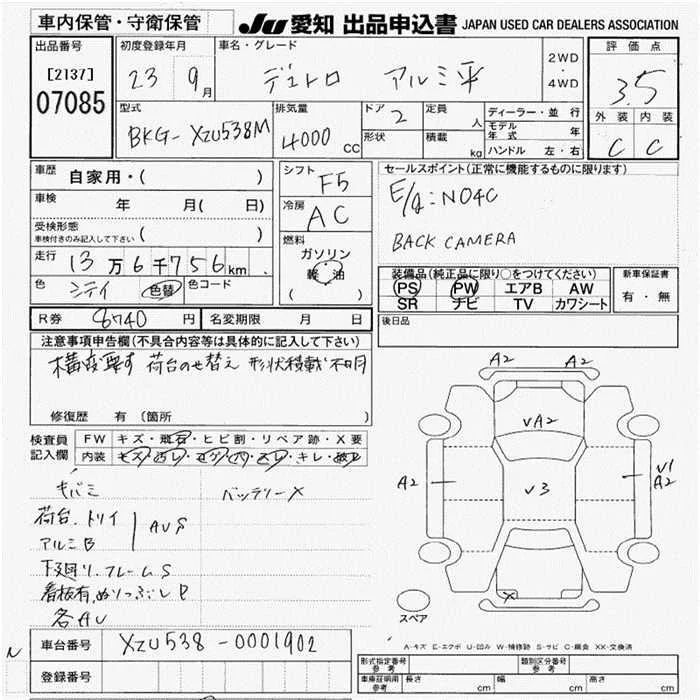 車内保管・守衛保管 JU 愛知 出品申込書 JAPAN USED CAR DEALERS ASSOCIATION
出品番号 初度登録年月 車名・グレード 2WD・4WD 評価点
[2137] 23 9月 デュトロ アルミ平 3.5
07085
型式 排気量 ドア 定員 ディーラー・並行 外装 内装
BKG-XZU538M 4000cc 2 人 モデル年式 年 C C
形状 積載 kg ハンドル 左・右
車歴 自家用・( ) シフト F5 セールスポイント(正常に機能するものに限ります)
車検 年 月( 日) 冷房 AC E/g:N04C
受検形態 車検付きのみ記入して下さい ( ) 燃料 ガソリン BACK CAMERA
走行 13万6千756km 軽油
( )
色 色替 色コード 装備品(純正品に限り○をつけてください) 新車保証書
PS PW エアB AW 有・無
SR ナビ TV カワシート
R券 8740円 名変期限 月 日 後日品
注意事項申告欄(不具合内容等は具体的に記入して下さい)
構変要す 荷台のせ替え 形状積載不明
修復歴 有 (箇所 )
検査員記入欄 FW キズ・飛石・ヒビ割・リペア跡・X要
内装 キズ・キレ
キバミ バッテリーX
荷台.トリイ
アルミB AUS
下廻り.フレームS
看板有.ぬりつぶしP
各AU
A2 A2
VA2
A2 V3 V1
A2
X
スペア
A-キズ E-エクボ U-凹み W-補修跡 S-サビ C-腐食 XX-交換済
N 車台番号 XZU538-0001902
登録番号
形式指定番号 参考 類別区分番号 参考
車庫証明用 参考 長さ cm 幅 cm 高さ cm